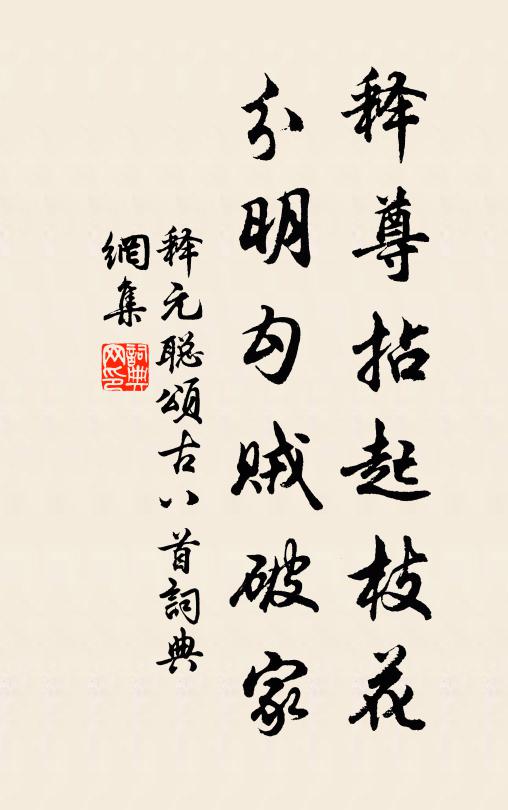 释尊拈起枝花
分明勾贼破家
释元聪頌古八首詞典
網集
詞典网印